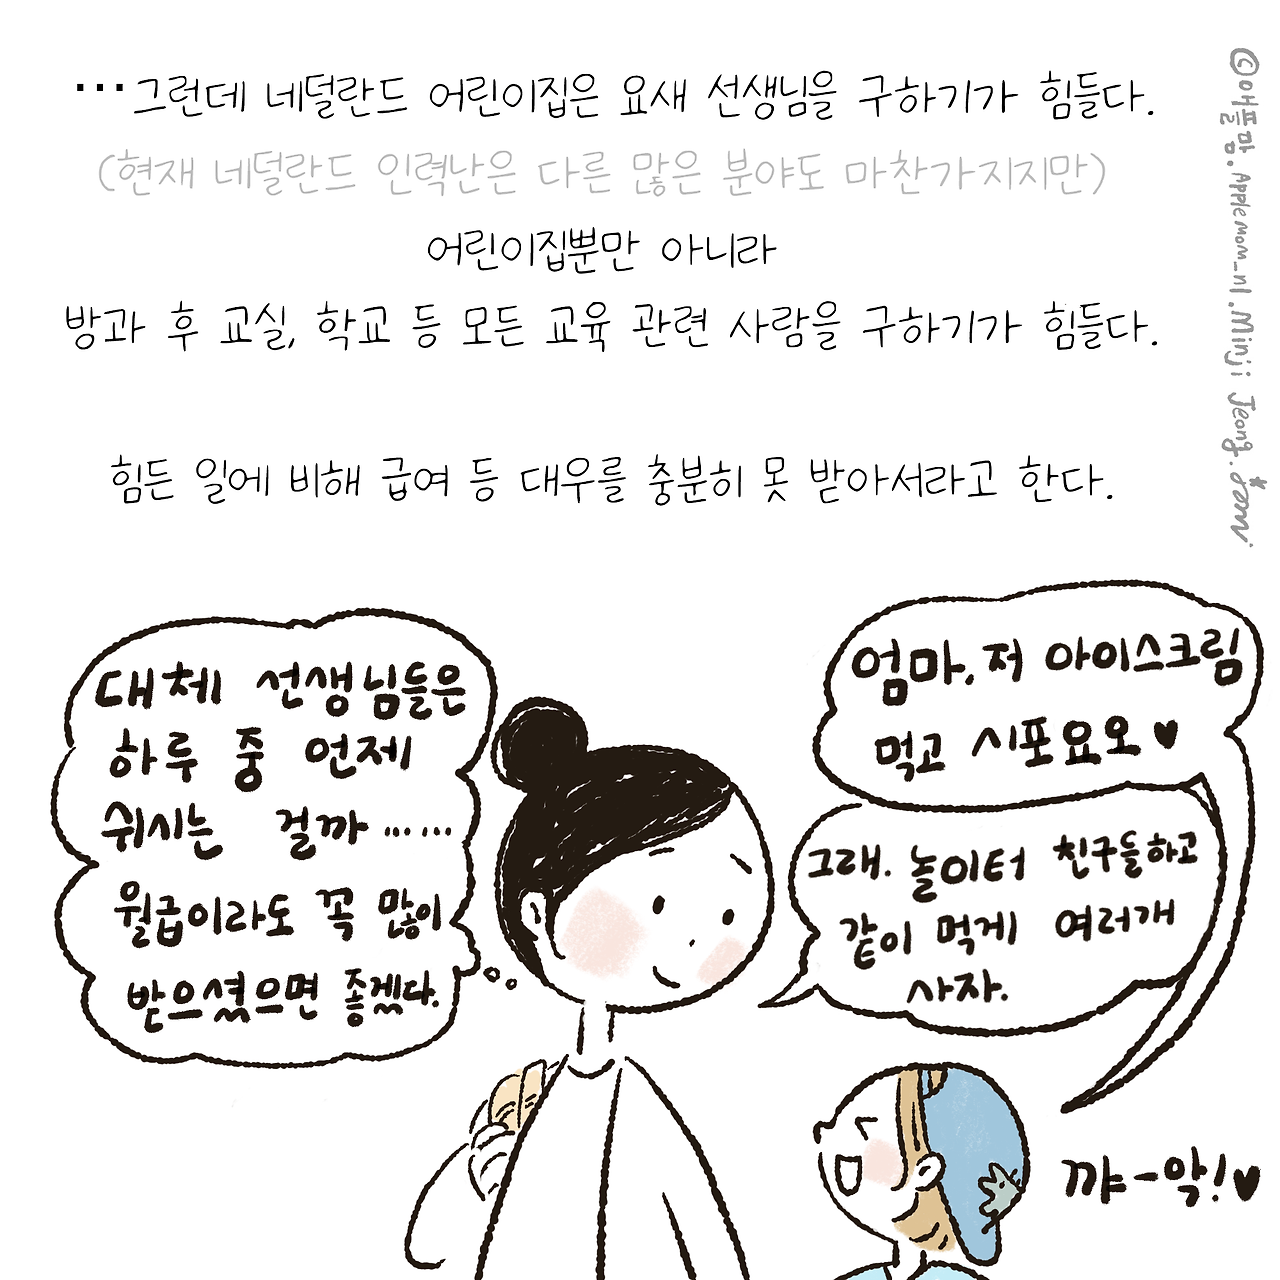 ...그런데 네덜란드 어린이집은 요새 선생님을 구하기가 힘들다.
(현재 네덜란드 인력난은 다른 많은 분야도 마찬가지지만)
어린이집뿐만 아니라
방과 후 교실, 학교 등 모든 교육 관련 사람을 구하기가 힘들다.
힘든 일에 비해 급여 등 대우를 충분히 못 받아서라고 한다.
대체 선생님들은
하루 중 언제
쉬시는 걸까 ... ...
월급이라도 꼭 많이
받으셨으면 좋겠다.
엄마, 저 아이스크림
먹고 시포요오♥
그래. 놀이터 친구들하고
같이 먹게 여러개
사자.
꺄-악!♥
©애플맘.Applemom_nl.Minji Jeong.